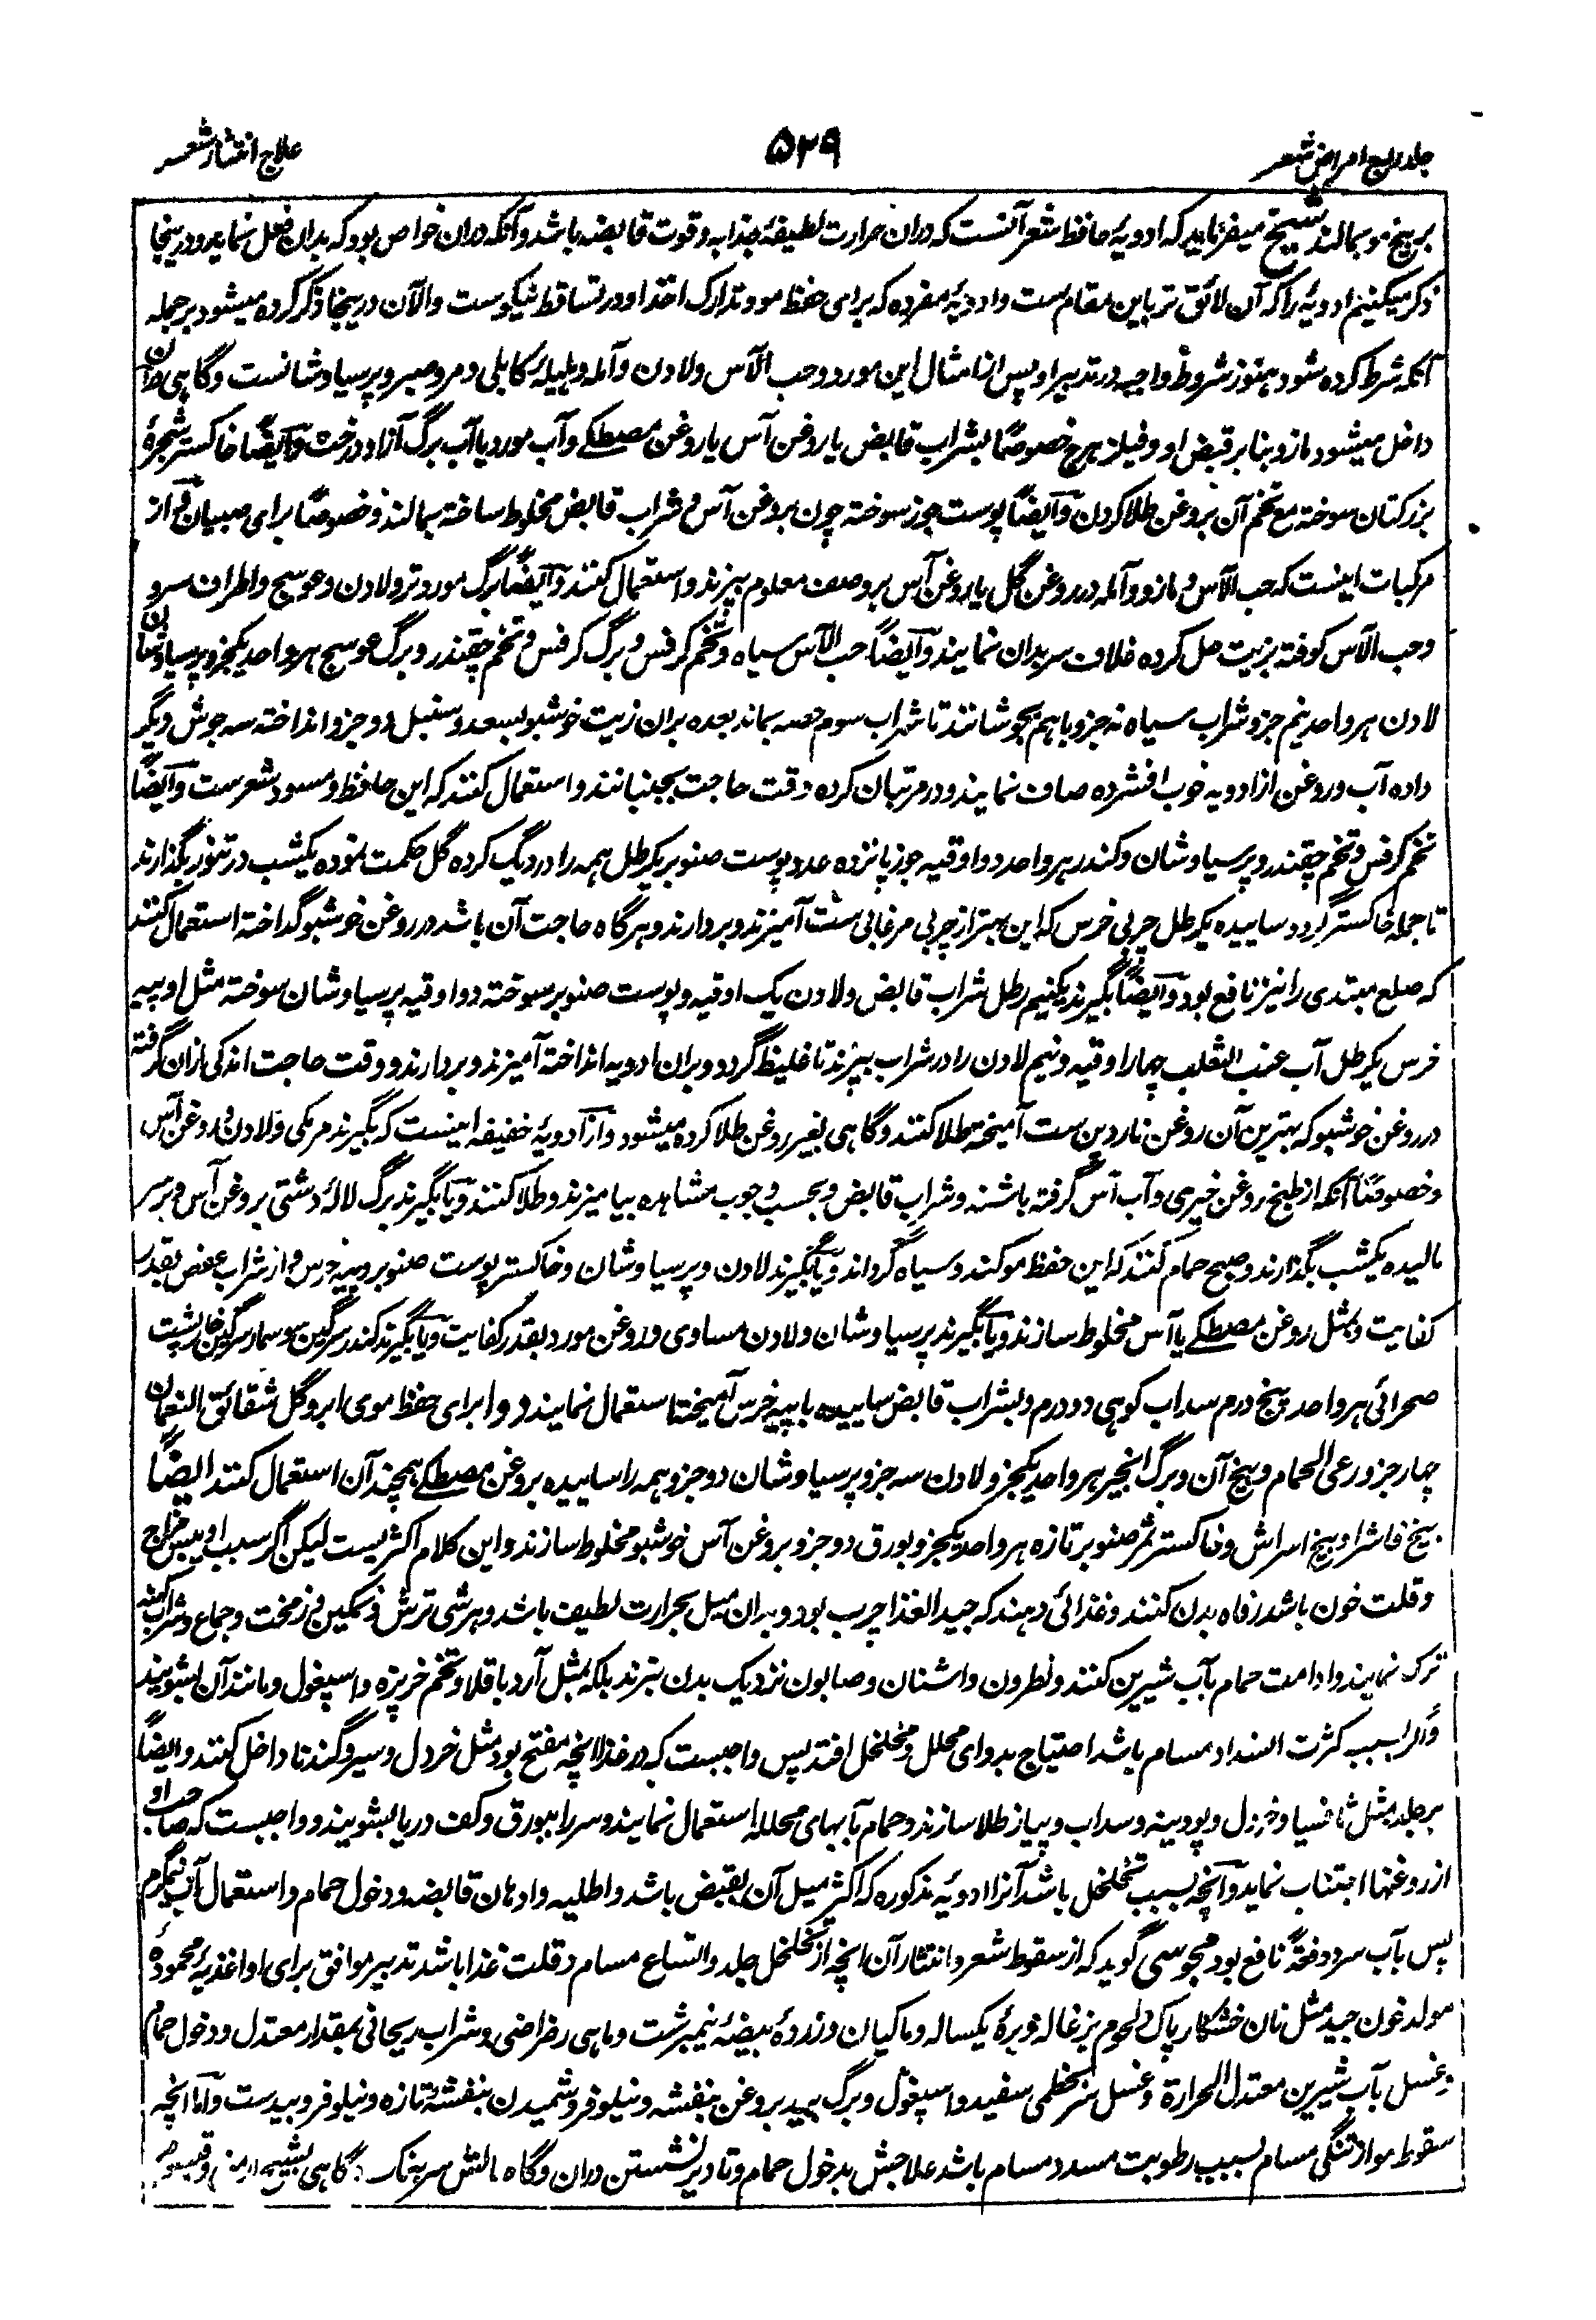 جلد رابع امراض شعر
۵۲۹
علاج انتشار شعر
بر بیخ مو بمالند شیخ میفرماید که ادویهٔ حافظ شعر آنست که دران حرارت لطیفهٔ جذابه و قوت قابضه باشد و آنکه دران خواص بود که بدان فعل نماید و درینجا
ذکر میکنیم ادویهٔ را که آن لائق تر باین مقام ست و ادویهٔ مفرده که برای حفظ مو و تدارک اخذ او در تساقط نیکوست و الآن درینجا ذکر کرده میشود بر جمله
آنکه شرط کرده شود هنوز شروط واجبه در تدبیر او پس از امثال این مورد و حب الآس و لادن و آمله و هلیلهٔ کابلی و مر و صبر و پرسیاوشانست و گاهی دران
داخل میشود مازو بنا بر قبض او و فیلزهرج خصوصاً بشراب قابض یا روغن آس یا روغن مصطکے و آب مورد یا آب برگ آزاد درخت و ایضاً خاکستر شجرهٔ
بزرکتان سوخته مع تخم آن بروغن طلا کردن و ایضاً پوست جوز سوخته چون بروغن آس و شراب قابض مخلوط ساخته بمالند و خصوصاً برای صبیان و از
مرکبات اینست که حب الآس و مازو و آمله در روغن گل یا روغن آس بر وصف معلوم بپزند و استعمال کنند و ایضاً برگ مورد تر و لادن و عوسج و اطراف سرو
و حب الآس کوفته بزیت حل کرده غلاف سر بدان نمایند و ایضاً حب الآس سیاه و تخم کرفس و برگ کرفس و تخم چقندر و برگ عوسج هر واحد یکجزو پرسیاوشان
لادن هر واحد نیم جزو شراب سیاه نه جزو باهم بجوشانند تا شراب سوم حصه بماند بعده بران زیت خوشبو بسعد و سنبل دو جزو انداخته سه جوش دیگر
داده آب و روغن از ادویه خوب افشرده صاف نمایند و در مرتبان کرده وقت حاجت بجنبانند و استعمال کنند که این حافظ و مسود شعرست و ایضاً
تخم کرفس و تخم چقندر و پرسیاوشان و کندر هر واحد دو اوقیه جوز پانزده عدد پوست صنوبر یکرطل همه را در دیگ کرده گل حکمت نموده یکشب در تنور بگذارند
تا جمله خاکستر گردد ساییده یکرطل چربی خرس که این بهتر از چربی مرغابی ست آمیزند و بردارند و هرگاه حاجت آن باشد در روغن خوشبو گداخته استعمال کنند
که صلع مبتدی را نیز نافع بود و ایضاً بگیرند یکنیم رطل شراب قابض و لادن یک اوقیه و پوست صنوبر سوخته دو اوقیه پرسیاوشان سوخته مثل او پیه
خرس یکرطل آب عنب الثعلب چهار اوقیه و نیم لادن را در شراب بپزند تا غلیظ گردد و بران ادویه انداخته آمیزند و بردارند و وقت حاجت اندکی ازان گرفته
در روغن خوشبو که بهترین آن روغن ناردین ست آمیخته طلا کنند و گاهی بغیر روغن طلا کرده میشود و از ادویهٔ خفیفه اینست که بگیرند مر مکی و لادن و روغن آس
و خصوصاً آنکه از طبخ روغن خیری و آب آس گرفته باشند و شراب قابض و بحسب وجوب مشاهده بیامیزند و طلا کنند و یا بگیرند برگ لالهٔ دشتی بروغن آس و بر سر
مالیده یکشب بگذارند و صبح حمام کنند که این حفظ مو کند و سیاه گرداند و یا بگیرند لادن و پرسیاوشان و خاکستر پوست صنوبر و پیه خرس و از شراب عفص بقدر
کفایت و بمثل روغن مصطکے یا آس مخلوط سازند و یا بگیرند پرسیاوشان و لادن مساوی و روغن مورد بقدر کفایت و یا بگیرند کندر سرگین سوسمار سرگین خارپشت
صحرائی هر واحد پنج درم سداب کوهی دو درم و بشراب قابض ساییده با پیه خرس آمیخته استعمال نمایند دوا برای حفظ موی ابرو گل شقائق النعمان
چهار جزو رعی الحمام و بیخ آن و برگ انجیر هر واحد یکجزو لادن سه جزو پرسیاوشان دو جزو همه را ساییده بروغن مصطکے همچند آن استعمال کنند ایضاً
بیخ فاشرا و بیخ اسراش و خاکستر ثمر صنوبر تازه هر واحد یکجزو بورق دو جزو بروغن آس خوشبو مخلوط سازند و این کلام اکثریست لیکن اگر سبب او یبس مزاج
و قلت خون باشد رفاه بدن کنند و غذائی دهند که جید الغذا چرب بود و بدان میل بحرارت لطیف باشد و هر شی ترش و نمکین و زمخت و جماع و شراب کهنه
ترک نمایند و ادامت حمام بآب شیرین کنند و نطرون و اشنان و صابون نزدیک بدن نبرند بلکه بمثل آرد باقلا و تخم خربزه و اسپغول و مانند آن بشویند
و اگر بسبب کثرت انسداد مسام باشد احتیاج بدوای محلل و مخلخل افتد پس واجبست که در غذا آنچه مفتح بود مثل خردل و سیر و گندنا داخل کنند و ایضاً
بر جلد مثل ثافسیا و خردل و پودینه و سداب و پیاز طلا سازند و حمام بآبهای محلله استعمال نمایند و سر را ببورق و کف دریا بشویند و واجبست که صاحب او
از روغنها اجتناب نماید و آنچه بسبب تخلخل باشد آنرا ادویهٔ مذکوره که اکثر میل آن بقبض باشد و اطلیه و ادهان قابضه و دخول حمام و استعمال آب نیمگرم
پس بآب سرد دفعةً نافع بود مجوسی گوید که از سقوط شعر و انتثار آن آنچه از تخلخل جلد و اتساع مسام و قلت غذا باشد تدبیر موافق برای او اغذیهٔ محمودهٔ
مولد خون جید مثل نان خشکار پاک و لحوم بزغاله و برهٔ یکساله و ماکیان و زردهٔ بیضهٔ نیمبرشت و ماهی رضراضی و شراب ریحانی بمقدار معتدل و دخول حمام
و غسل بآب شیرین معتدل الحرارة و غسل سر بخطمی سفید و اسپغول و برگ بید بروغن بنفشه و نیلوفر و شمیدن بنفشهٔ تازه و نیلوفر و بیدست و اما آنچه
سقوط مو از تنگی مسام بسبب رطوبت مسدد مسام باشد علاجش بدخول حمام و تا دیر نشستن دران و گاه مالش سر بنمک و گاهی بشیح ارمنی و قیصوم